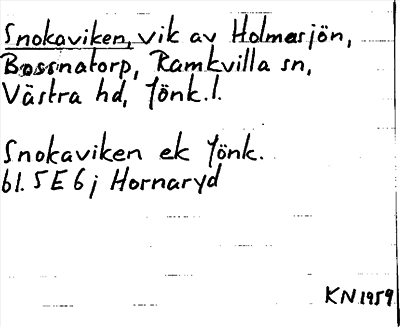 Snokaviken, vik av Holmasjön,
Bossnatorp, Ramkvilla sn,
Västra hd, Jönk.l.
Snokaviken ek Jönk.
bl. 5E6j Hornaryd
KN 1959